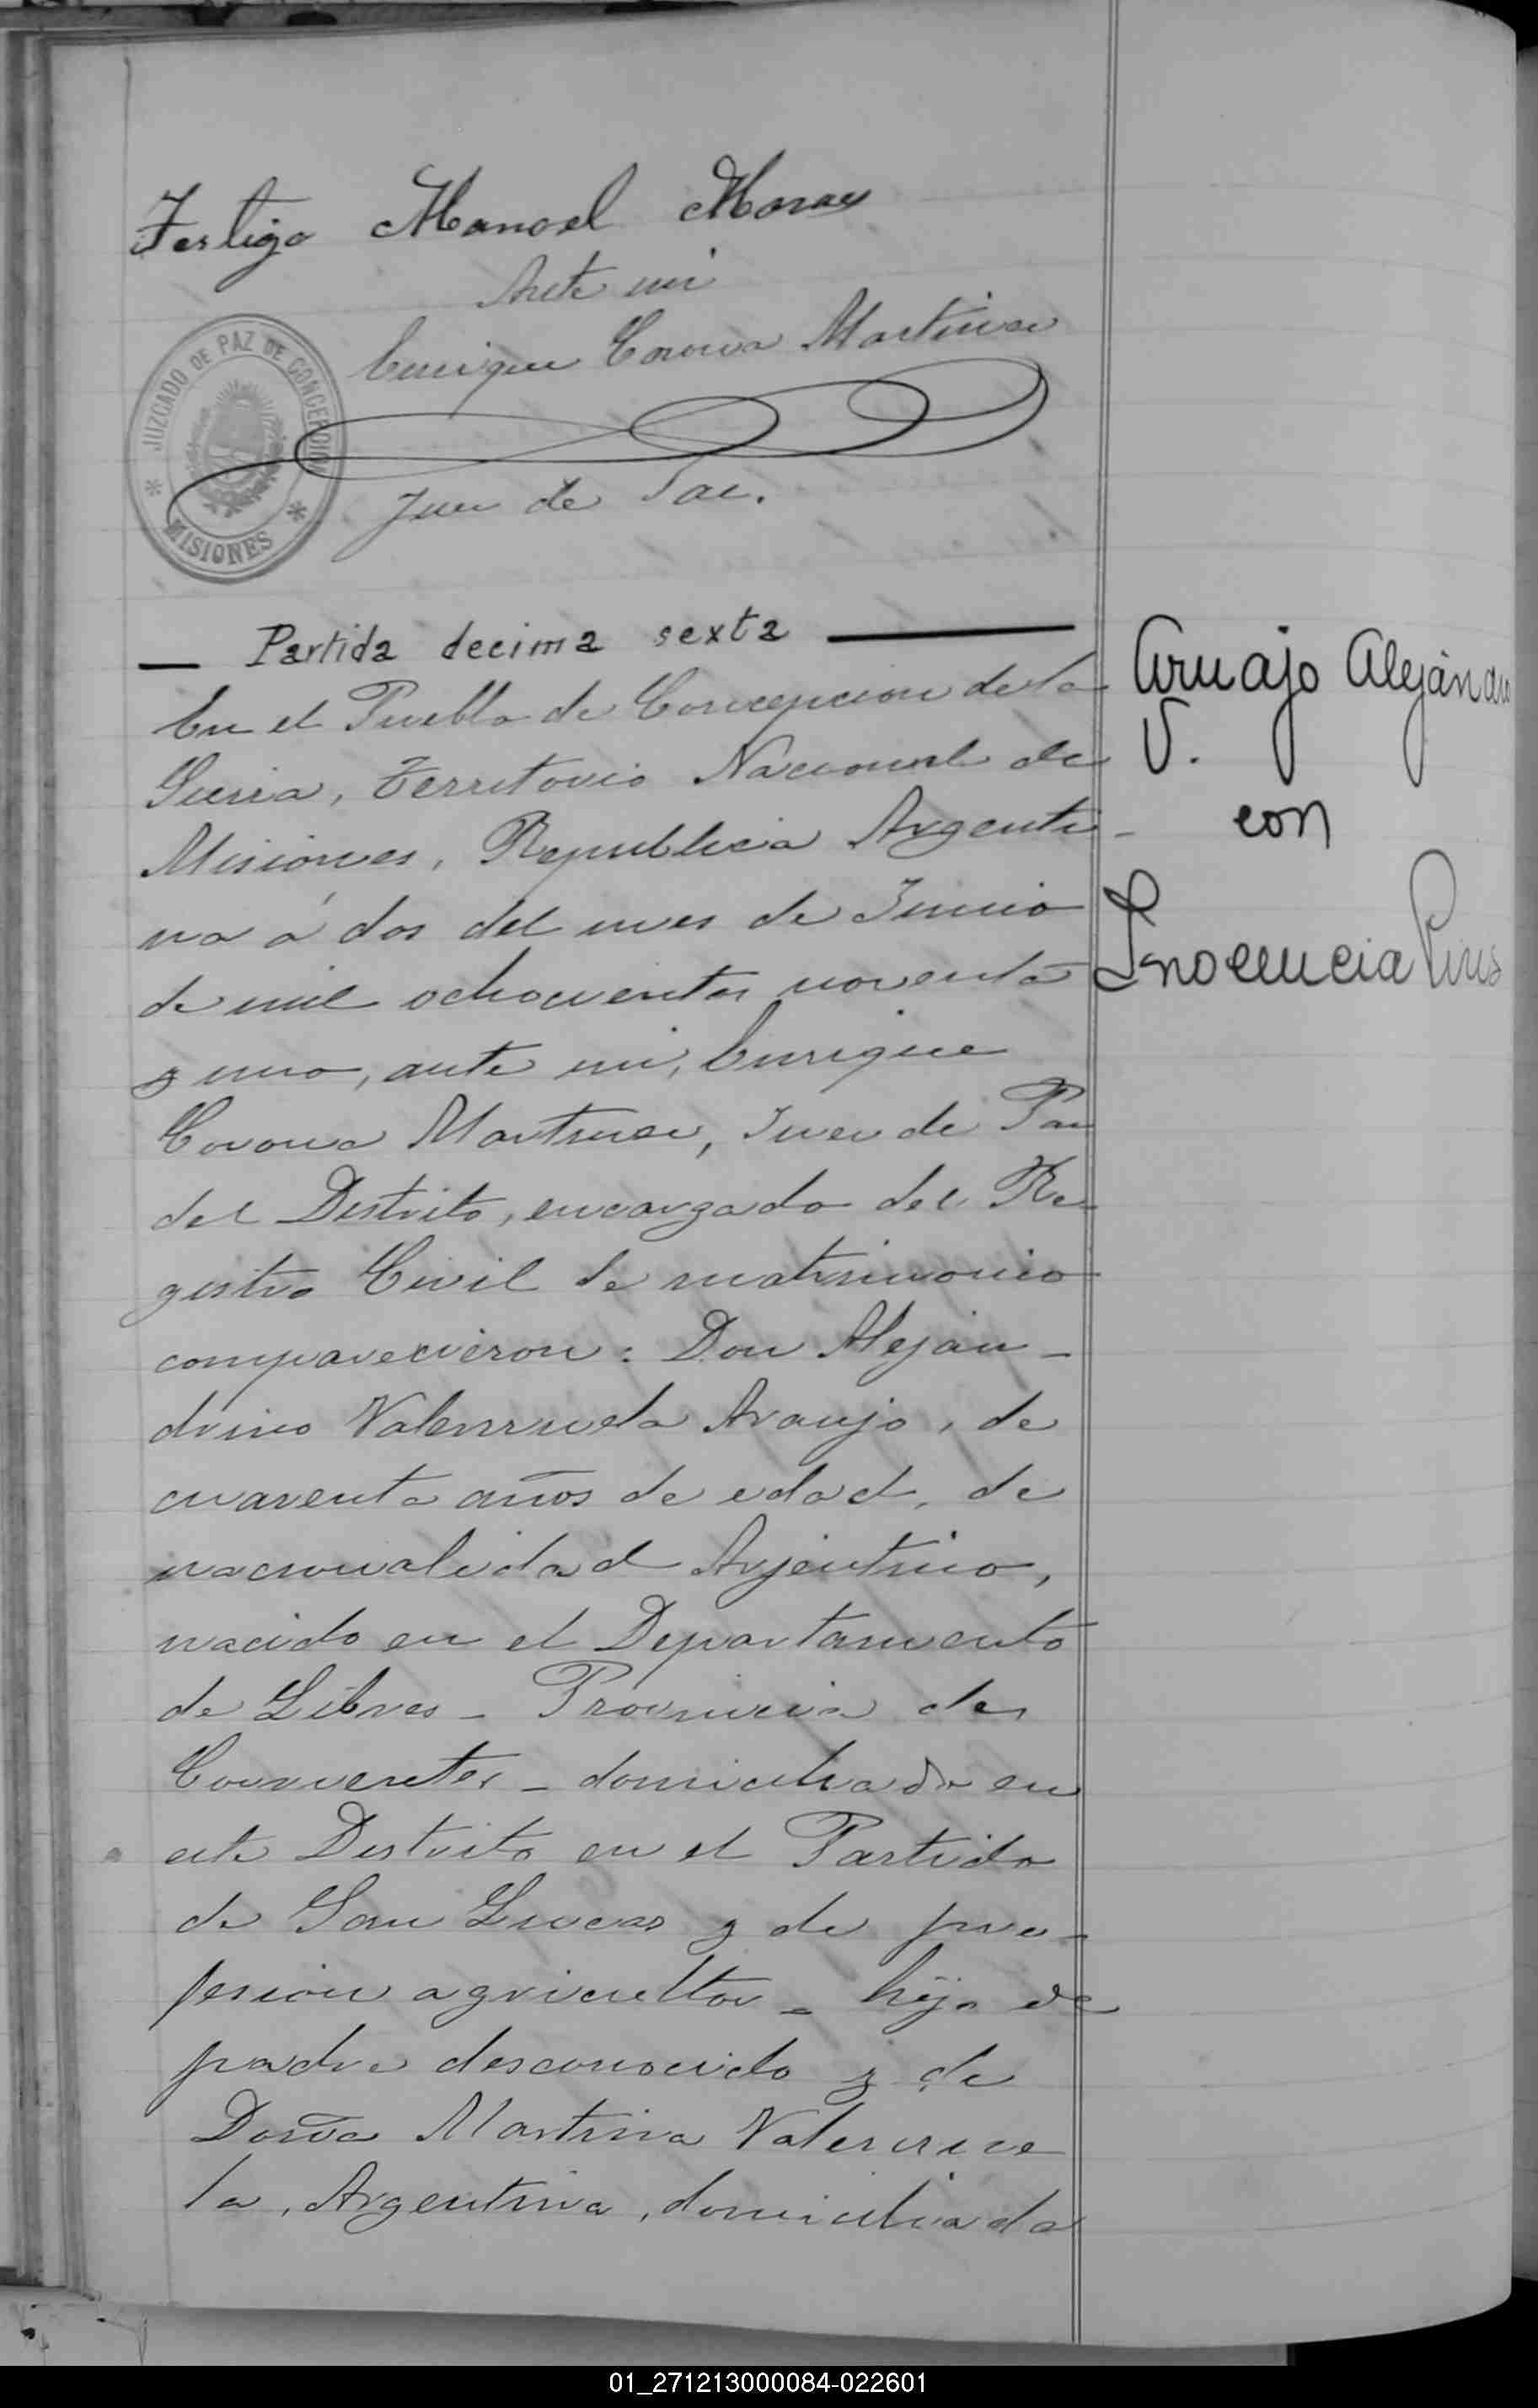 Testigo Manoel Moraes
Ante mi
Enrique Corona Martinez
JUZGADO DE PAZ DE CONCEPCION
MISIONES
Juez de Paz.
— Partida decima sexta —
En el Pueblo de Concepcion de la
Sierra, Territorio Nacional de
Misiones, Republica Argenti-
na á dos del mes de Junio
de mil ochocientos noventa
y uno, ante mi, Enrique
Corona Martinez, Juez de Paz
del Distrito, encargado del Re-
gistro Civil de matrimonio
comparecieron: Don Alejan-
drino Valenzuela Araujo, de
cuarenta años de edad, de
nacionalidad Arjentino,
nacido en el Departamento
de Libres - Provincia de
Corrientes - domiciliado en
este Distrito en el Partido
de San Lucas y de pro-
fesion agricultor - hijo de
padre desconocido y de
Doña Martina Valenzue
la, Argentina, domiciliada
Aruajo Alejandro
V.
con
Inocencia Pires
01_271213000084-022601